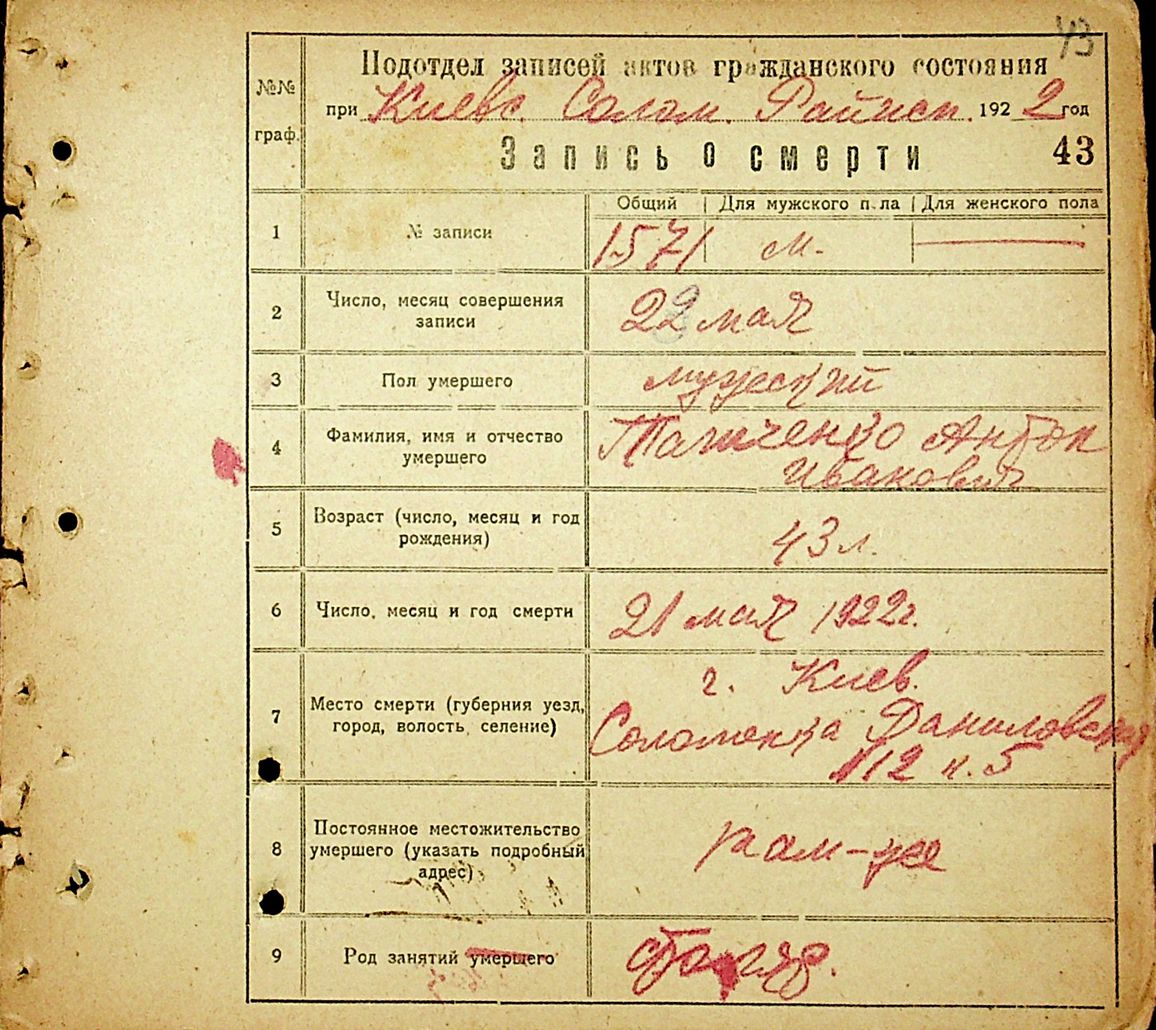 43
Подотдел записей актов гражданского состояния
№№ граф.
при Киевс. Солом. Райисп. 1922 год
Запись о смерти 43
Общий | Для мужского пола | Для женского пола
1 № записи 1571 м. —
2 Число, месяц совершения
записи
22 мая
3 Пол умершего мужеский
4 Фамилия, имя и отчество
умершего
Антон
Иванович
5 Возраст (число, месяц и год
рождения)
43 л.
6 Число, месяц и год смерти 21 мая 1922 г.
7 Место смерти (губерния уезд,
город, волость, селение)
г. Киев.
Соломенка Даниловская
112 к. 5
8 Постоянное местожительство
умершего (указать подробный
адрес)
там-же
9 Род занятий умершего столяр.